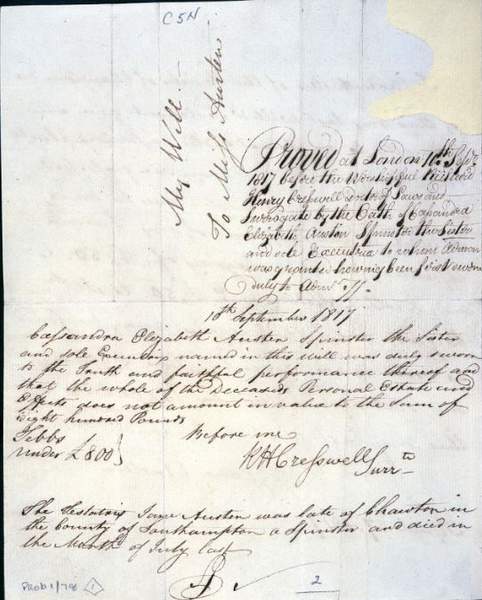 C5N
My Will.—
To Miss Austen
Proved at London 10th Septr.
1817 before the Worshipful
Henry Cresswell Doctor of Laws and
Surrogate by the Oath of Cassandra
Elizabeth Austen Spinster the Sister
and sole Executrix to whom Admon
was granted having been first sworn
duly to Admr.
10th September 1817
Cassandra Elizabeth Austen Spinster the Sister
and sole Executrix named in this will was duly sworn
to the Truth and faithful performance thereof and
that the whole of the Deceaseds Personal Estate and
Effects does not amount in value to the Sum of
Eight hundred Pounds
Before me
under £800}
Cresswell
Surr.te
The Testatrix Jane Austen was late of Chawton in
the County of Southampton a Spinster and died in
the Month of July last
2
PROB 1/78
1